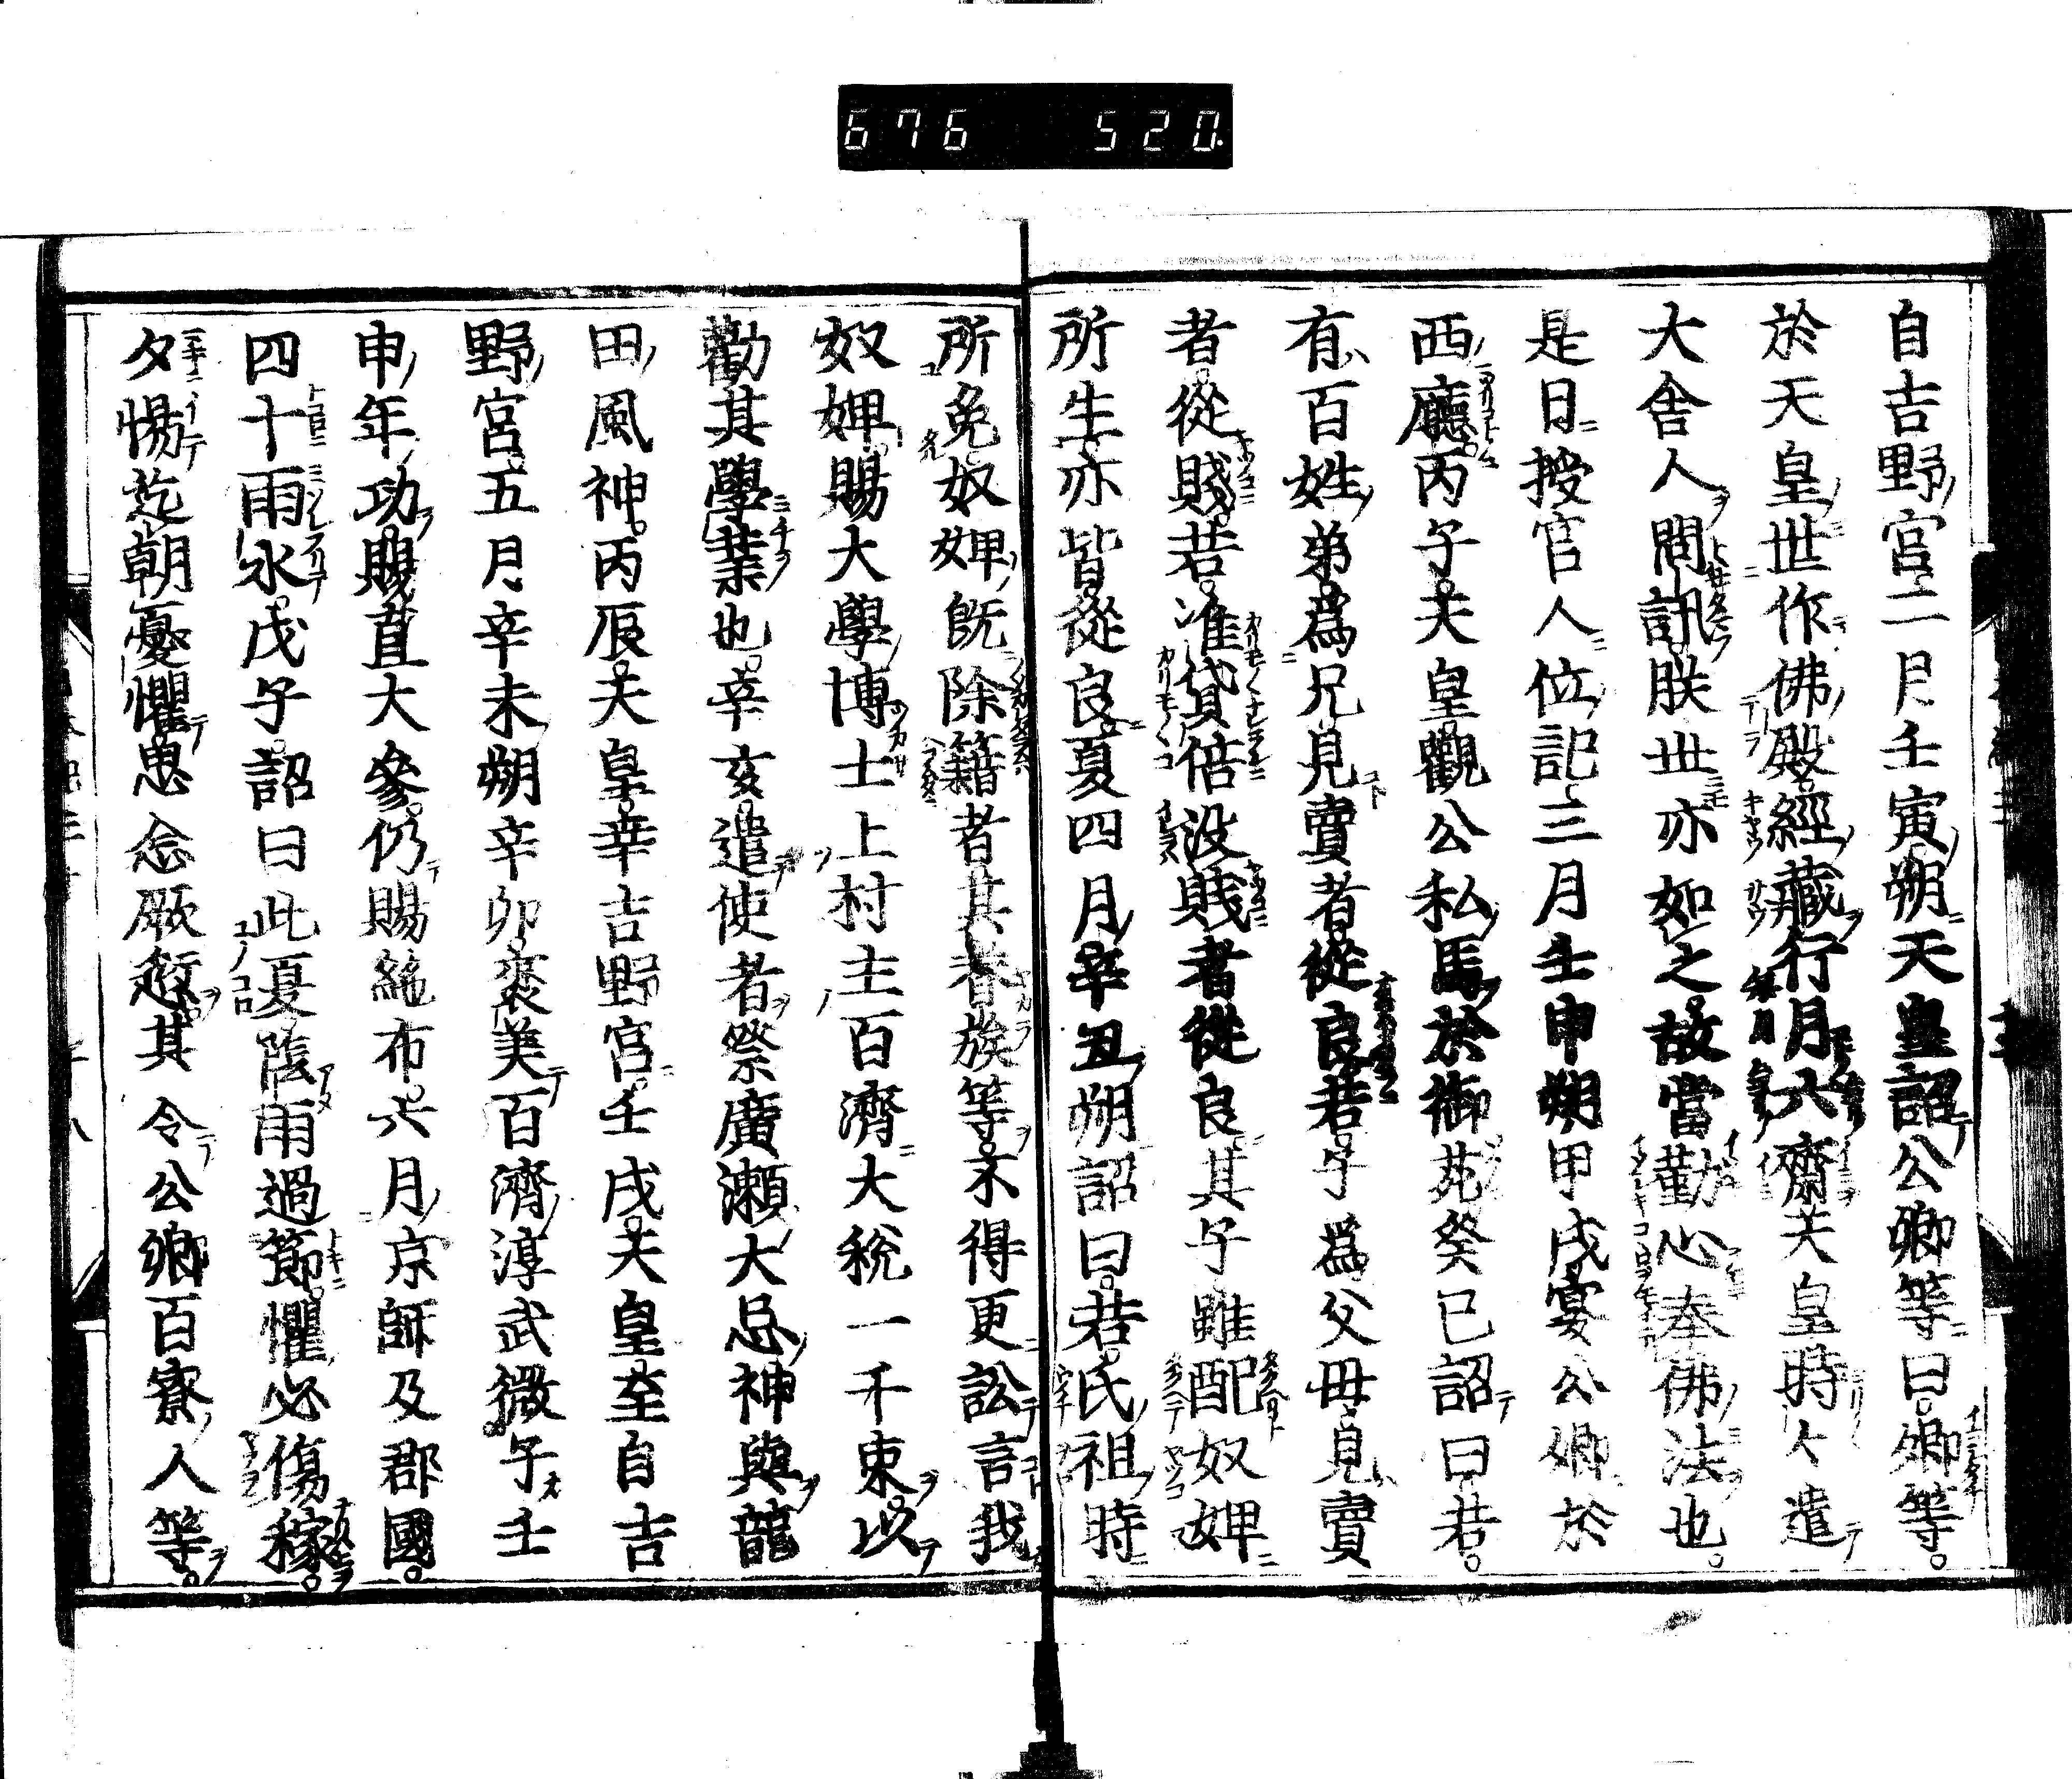 676 520.
自吉野宮二月壬寅朔天皇詔公卿等曰卿等
於天皇世作佛殿經藏行月六齋天皇時々遣
大舎人問訊朕世亦如之故當勤心奉佛法也
是日授官人位記三月壬申朔甲戌宴公卿於
西廳丙子天皇觀公私馬於御苑癸巳詔曰若
有百姓弟爲兄見賣者從良若子爲父母見賣
者從賤若准貸倍没賤者從良其子雖配奴婢
所生亦皆從良夏四月辛丑朔詔曰若氏祖時
所免奴婢既除籍者其眷族等不得更訟言我
奴婢賜大學博士上村主百濟大税一千束以
勸其學業也辛亥遣使者祭廣瀬大忌神與龍
田風神丙辰天皇幸吉野宮壬戌天皇至自吉
野宮五月辛未朔辛卯褒美百濟淳武微子壬
申年功賜直大參仍賜絁布六月京師及郡國
四十雨水戊子詔曰此夏陰雨過節懼必傷稼
夕惕迄朝憂懼思念厥愆其令公卿百寮人等